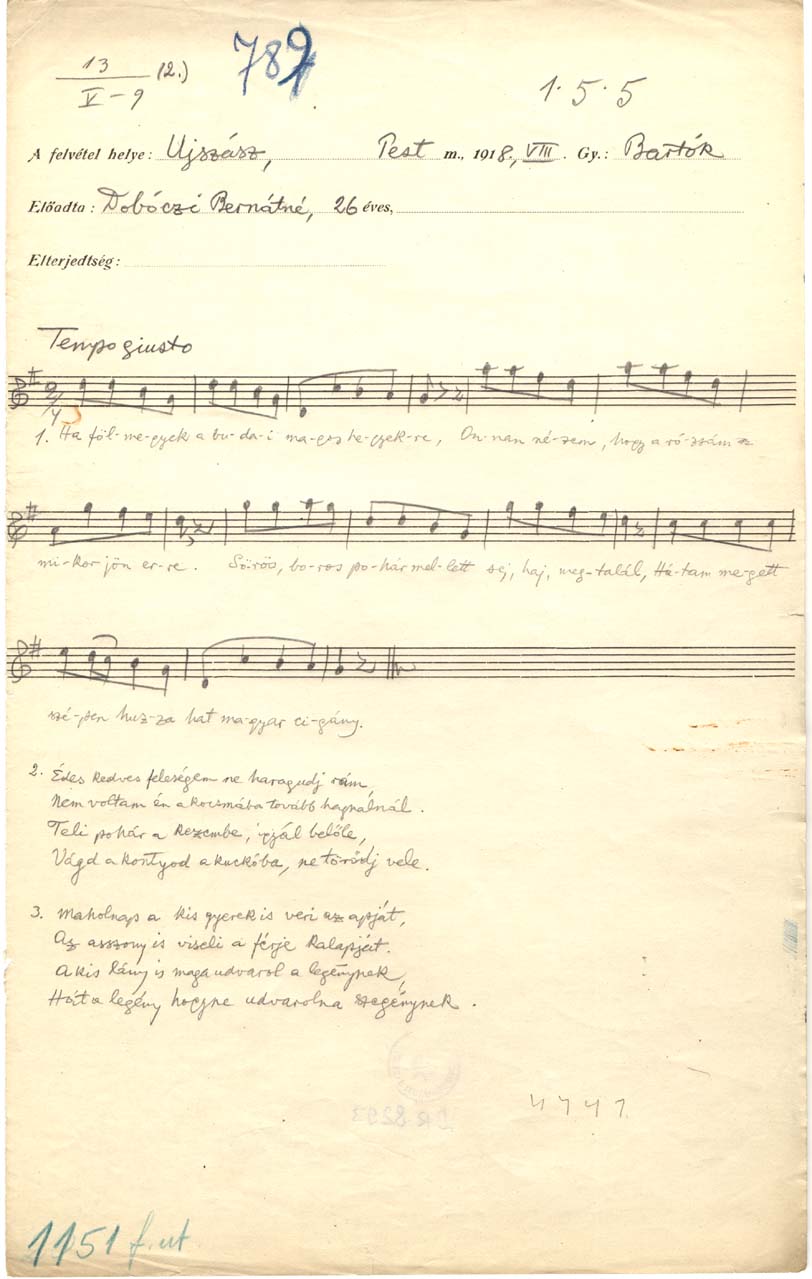 13 (2.)
V-9
789
1·5·5
A felvétel helye: Ujszász, Pest m., 1918., VIII. Gy.: Bartók
Előadta: Dobóczi Bernátné, 26 éves,
Elterjedtség:
Tempo giusto
2/4
1. Ha föl-me-gyek a bu-da-i ma-gos he-gyek-re, On-nan né-zem, hogy a ró-zsám
mi-kor jön er-re. Sö-rös, bo-ros po-hár mel-lett sej, haj, meg-talál, Há-tam me-gett
szé-pen huz-za hat ma-gyar ci-gány.
2. Édes kedves feleségem ne haragudj rám,
Nem voltam én a kocsmába tovább hajnalnál.
Teli pohár a kezembe, igyál belőle,
Vágd a kontyod a kuckóba, ne törődj vele.
3. Maholnap a kis gyerek is veri az apját,
Az asszony is viseli a férje kalapját.
A kis lány is maga udvarol a legénynek,
Hát a legény hogyne udvarolna szegénynek.
DR 8293
4741
1151 f. ut